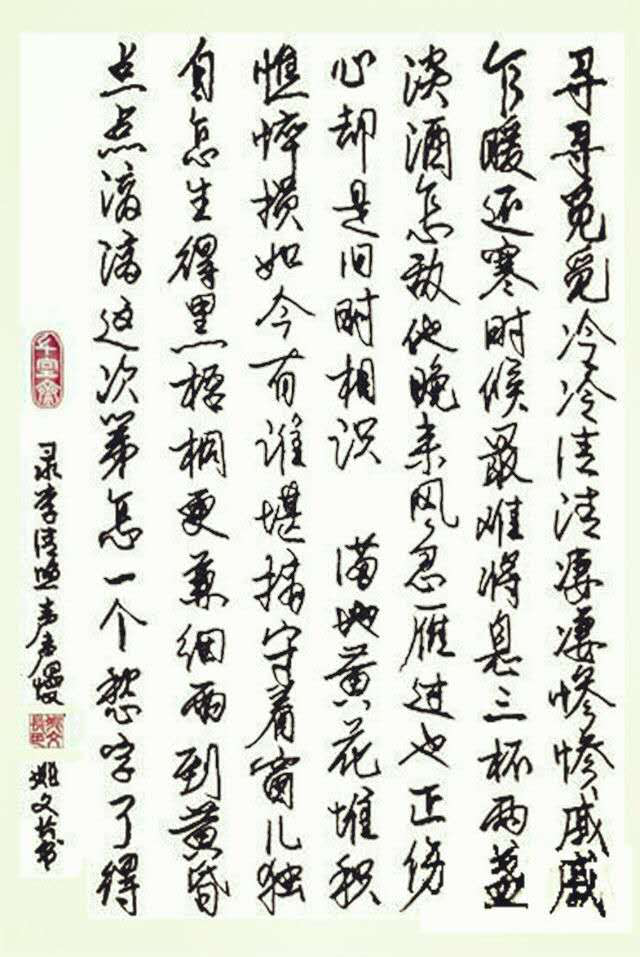 寻寻觅觅冷冷清清凄凄惨惨戚戚
乍暖还寒时候最难将息三杯两盏
淡酒怎敌他晚来风急雁过也正伤
心却是旧时相识 满地黄花堆积
憔悴损如今有谁堪摘守着窗儿独
自怎生得黑梧桐更兼细雨到黄昏
点点滴滴这次第怎一个愁字了得
录李清照声声慢